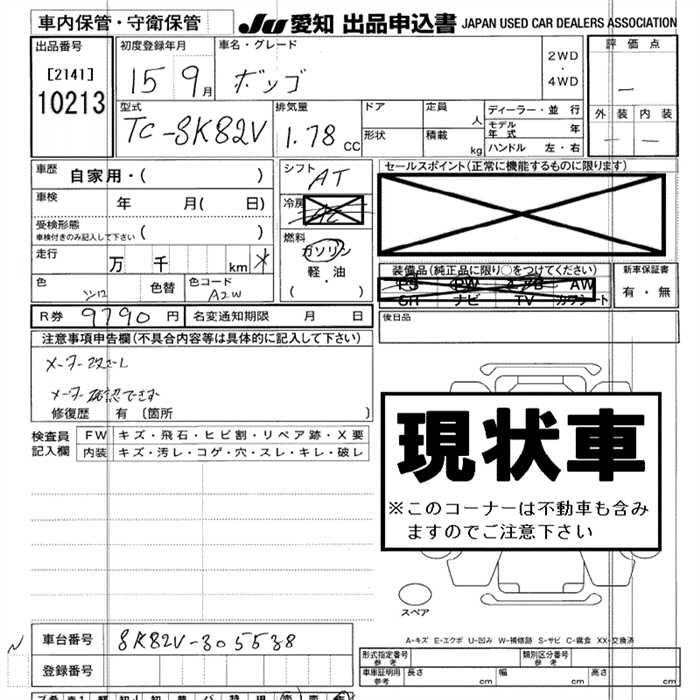 車内保管・守衛保管
JU 愛知 出品申込書 JAPAN USED CAR DEALERS ASSOCIATION
出品番号
[2141]
10213
初度登録年月
15 9月
車名・グレード
ボンゴ
2WD
・
4WD
評価点
―
外装 内装
― ―
型式
TC-SK82V
排気量
1.78 CC
ドア
形状
定員 人
積載 kg
ディーラー・並行
モデル年式 年
ハンドル 左・右
車歴 自家用・( )
車検 年 月( 日)
受検形態
車検付きのみ記入して下さい ( )
走行 万 千 km *
色 シロ 色替 色コード A2W
シフト AT
冷房 AC
燃料
ガソリン
軽・油
( )
セールスポイント(正常に機能するものに限ります)
装備品(純正品に限り○をつけてください)
PS PW エアB AW
SR ナビ TV カワシート
新車保証書
有・無
R券 9790 円 名変通知期限 月 日
後日品
注意事項申告欄(不具合内容等は具体的に記入して下さい)
メーター改ざんし
メーター確認できず
修復歴 有 〔箇所 〕
検査員記入欄
FW キズ・飛石・ヒビ割・リペア跡・X要
内装 キズ・汚レ・コゲ・穴・スレ・キレ・破レ
現状車
※このコーナーは不動車も含み
ますのでご注意下さい
スペア
A-キズ E-エクボ U-凹み W-補修跡 S-サビ C-腐食 XX-交換済
N
車台番号 SK82V-305538
登録番号
形式指定番号 参考
類別区分番号 参考
車庫証明用 参考 長さ cm 幅 cm 高さ cm